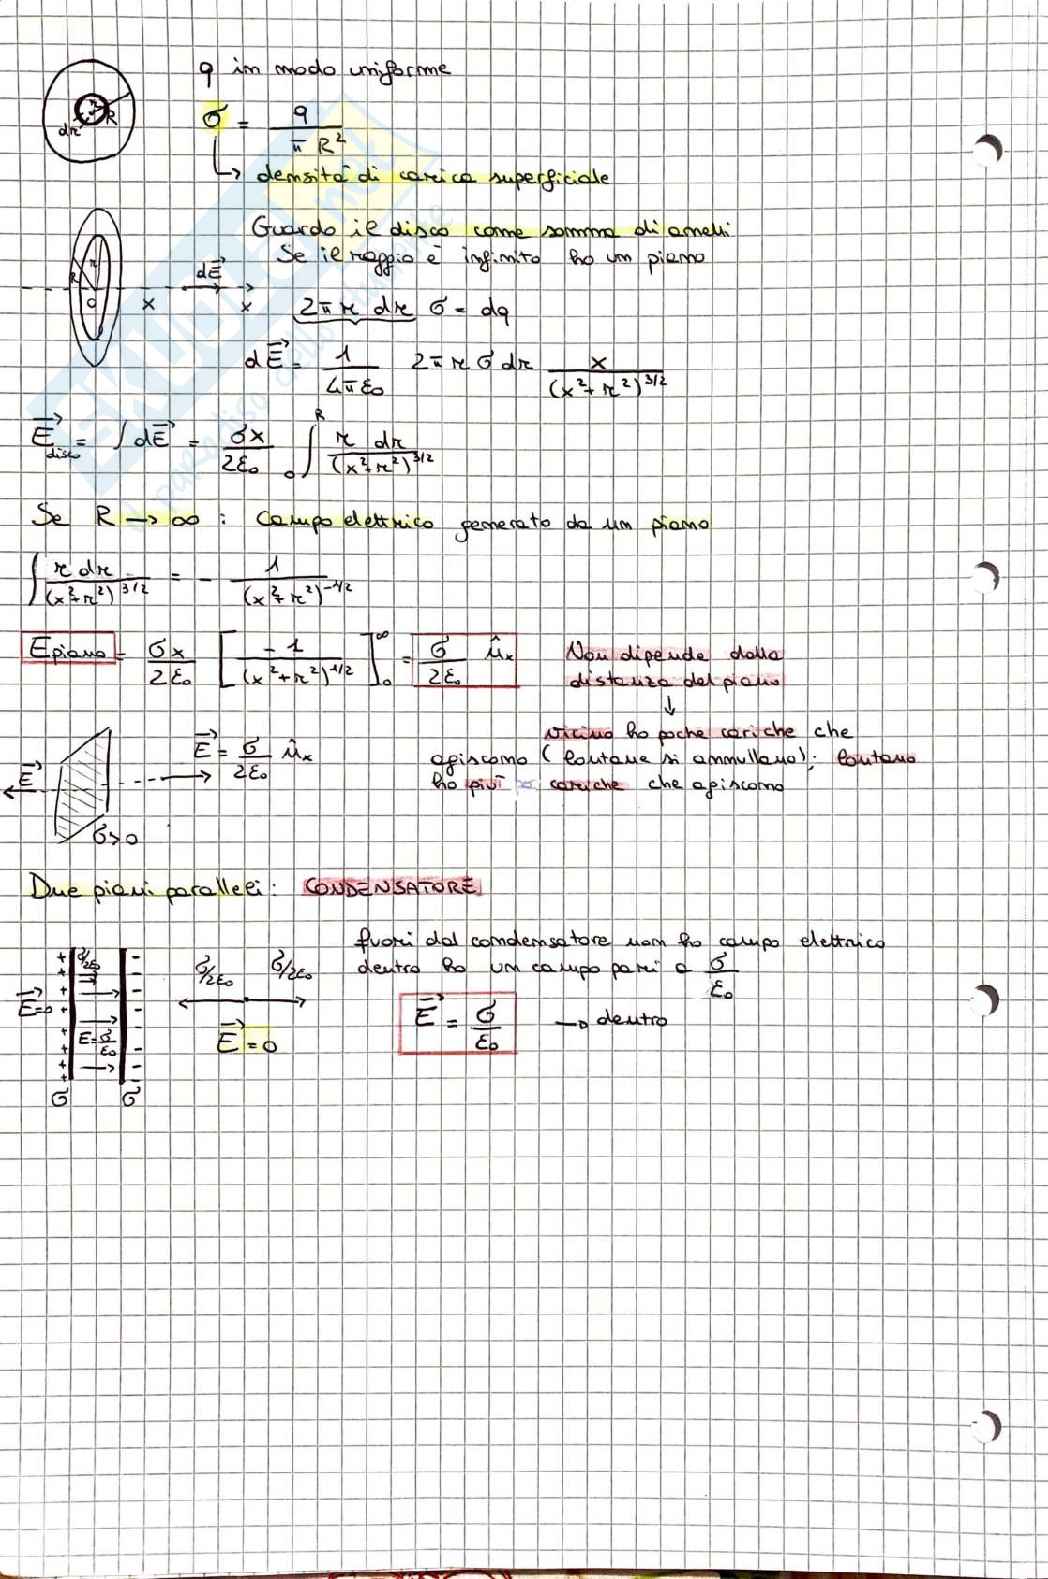 q in modo uniforme
R
dr
σ = q / π R²
↳ densità di carica superficiale
Guardo il disco come somma di anelli
Se il raggio è infinito ho un piano
dE→
R r
O x x
2π r dr σ = dq
dE→ = 1 / 4π ε₀ 2π r σ dr x / (x²+r²)^3/2
E→ disco = ∫ dE→ = σx / 2ε₀ ₀∫^R r dr / (x²+r²)^3/2
Se R → ∞ : campo elettrico generato da un piano
∫ r dr / (x²+r²)^3/2 = - 1 / (x²+r²)^-1/2
E piano = σx / 2ε₀ [ -1 / (x²+r²)^1/2 ]₀^∞ = σ / 2ε₀ ûₓ Non dipende dalla
distanza dal piano
↓
vicino ho poche cariche che
E→ = σ / 2ε₀ ûₓ agiscono (lontane si annullano); lontano
E→ ho più cariche che agiscono
σ>0
Due piani paralleli: CONDENSATORE
fuori dal condensatore non ho campo elettrico
σ/2ε₀ σ/2ε₀ σ/2ε₀ dentro ho un campo pari a σ / ε₀
E→=0 E→ = σ / ε₀ → dentro
E = σ / ε₀ E→ = 0
σ σ